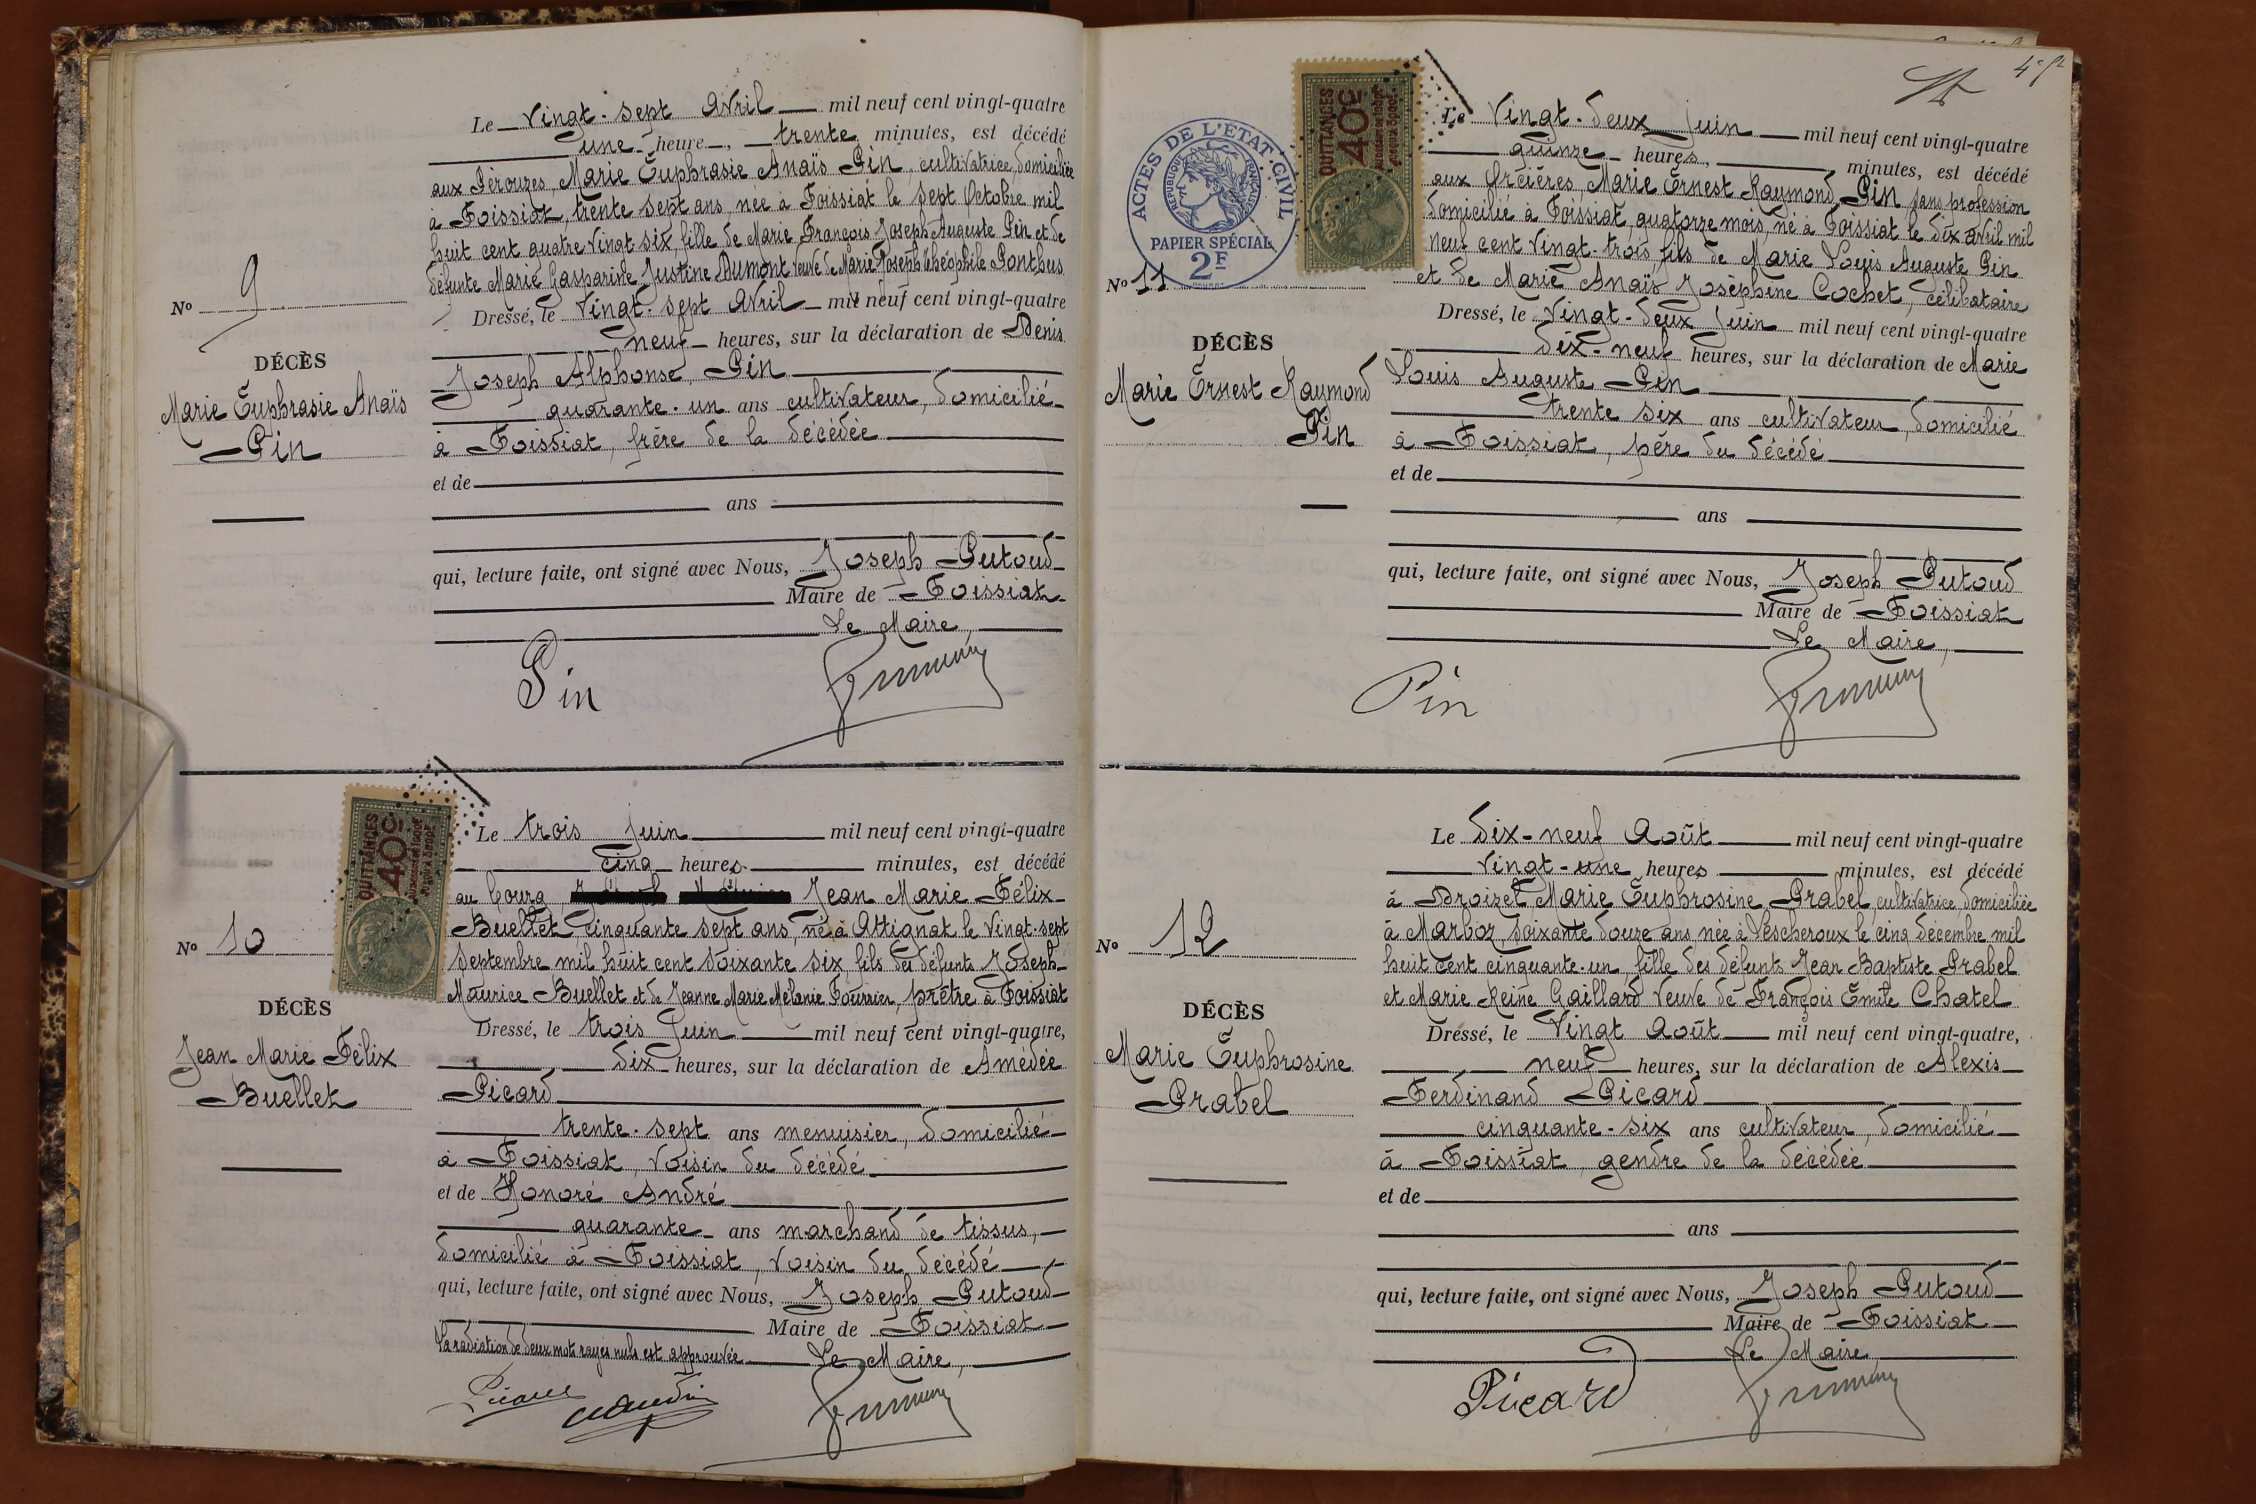 Le Vingt-sept Avril mil neuf cent vingt-quatre
une heure, trente minutes, est décédé
aux Pérouzes, Marie Euphrasie Anaïs Pin, cultivatrice, domiciliée
à Foissiat, trente sept ans, née à Foissiat le sept Octobre mil
huit cent quatre vingt six, fille de Marie François Joseph Auguste Pin et de
défunte Marie Gasparine Justine Dumont veuve de Marie Joseph Théophile Ponthus
Nº 9
Dressé, le Vingt-sept Avril mil neuf cent vingt-quatre
neuf heures, sur la déclaration de Denis
DÉCÈS
Joseph Alphonse Pin
Marie Euphrasie Anaïs
Pin
quarante-un ans cultivateur, domicilié
à Foissiat, frère de la décédée
et de
ans
qui, lecture faite, ont signé avec Nous, Joseph Putoud
Maire de Foissiat
Le Maire,
Pin
QUITTANCES
40c
Le trois Juin mil neuf cent vingt-quatre
cinq heures minutes, est décédé
au bourg Jean Marie Félix
Buellet, cinquante sept ans, né à Attignat le Vingt-sept
Septembre mil huit cent soixante six, fils des défunts Joseph
Maurice Buellet et de Jeanne Marie Mélanie Fourrier, prêtre à Foissiat
Nº 10
DÉCÈS
Jean Marie Félix
Buellet
Dressé, le trois Juin mil neuf cent vingt-quatre,
dix heures, sur la déclaration de Amédée
Picard
trente-sept ans menuisier, domicilié
à Foissiat, voisin du décédé
et de Honoré André
quarante ans marchand de tissus,
domicilié à Foissiat, voisin du décédé
qui, lecture faite, ont signé avec Nous, Joseph Putoud
Maire de Foissiat
La radiation de deux mots rayés nuls est approuvée Le Maire,
ACTES DE L'ETAT-CIVIL
REPUBLIQUE FRANÇAISE
PAPIER SPÉCIAL
2F
QUITTANCES
40c
Le Vingt-deux Juin mil neuf cent vingt-quatre
quinze heures, minutes, est décédé
aux Orcières, Marie Ernest Raymond Pin sans profession
domicilié à Foissiat, quatorze mois, né à Foissiat le dix avril mil
neuf cent vingt-trois, fils de Marie Louis Auguste Pin
et de Marie Anaïs Joséphine Cochet, célibataire
Nº 11
DÉCÈS
Marie Ernest Raymond
Pin
Dressé, le Vingt-deux Juin mil neuf cent vingt-quatre
dix-neuf heures, sur la déclaration de Marie
Louis Auguste Pin
trente six ans cultivateur, domicilié
à Foissiat, père du décédé
et de
ans
qui, lecture faite, ont signé avec Nous, Joseph Putoud
Maire de Foissiat
Le Maire,
Pin
Le dix-neuf Août mil neuf cent vingt-quatre
vingt-une heures minutes, est décédé
à Broizet Marie Euphrosine Prabel, cultivatrice, domiciliée
à Marboz, soixante douze ans, née à Lescheroux le cinq décembre mil
huit cent cinquante-un, fille des défunts Jean Baptiste Prabel
et Marie Reine Gaillard veuve de François Emile Chatel
Nº 12
DÉCÈS
Marie Euphrosine
Prabel
Dressé, le Vingt Août mil neuf cent vingt-quatre,
neuf heures, sur la déclaration de Alexis
Ferdinand Picard
cinquante-six ans cultivateur, domicilié
à Foissiat, gendre de la décédée
et de
ans
qui, lecture faite, ont signé avec Nous, Joseph Putoud
Maire de Foissiat
Le Maire
Picard